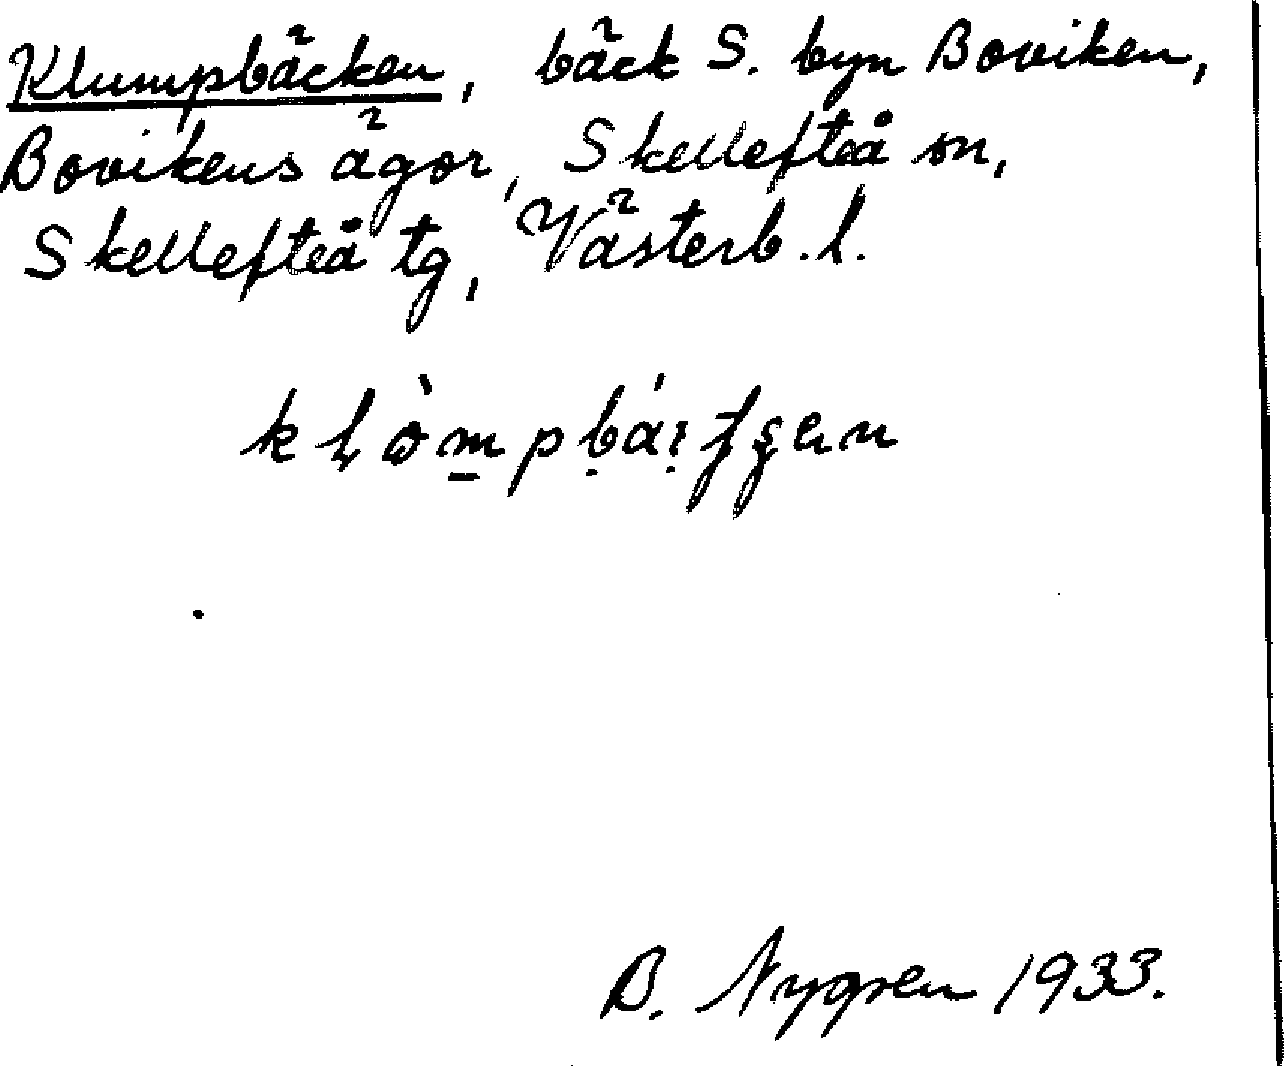 Klumpbäcken, bäck S. byn Boviken,
Bovikens ägor, Skellefteå sn,
Skellefteå tg, Västerb. l.
B. Nygren 1933.